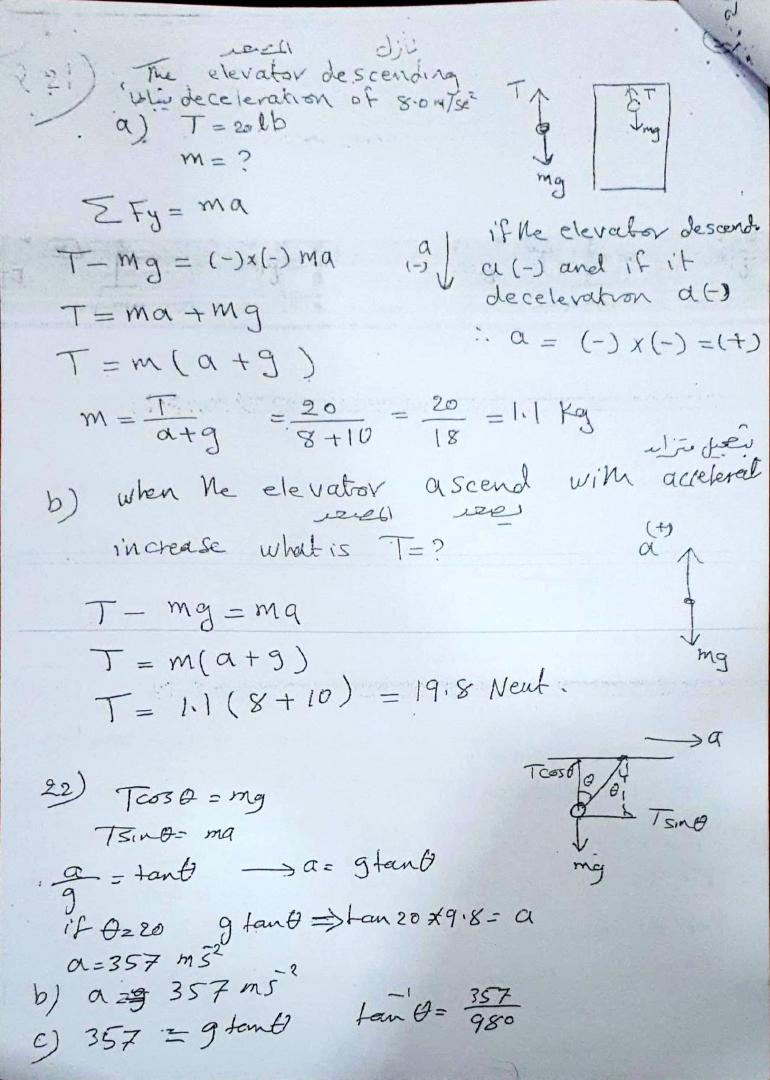 نازل المصعد
21) The elevator descending
بتباطؤ deceleration of 8.0 m/se²
a) T = 20 lb
m = ?
T
mg
T
mg
ΣFy = ma
T - mg = (-)x(-) ma
T = ma + mg
T = m(a + g)
m = T/(a+g) = 20/(8+10) = 20/18 = 1.1 Kg
a (-)
if the elevator descend
a (-) and if it
deceleration a(-)
∴ a = (-) x (-) = (+)
بتعجيل متزايد
b) when the elevator ascend with accelerat
المصعد يصعد
increase what is T = ?
a (+)
mg
T - mg = ma
T = m(a + g)
T = 1.1 (8 + 10) = 19.8 Neut.
22) Tcosθ = mg
Tsinθ = ma
a/g = tanθ → a = g tanθ
if θ=20 g tanθ ⇒ tan 20 *9.8 = a
a = 357 ms⁻²
→ a
Tcosθ θ θ
Tsinθ
mg
b) a = 357 ms⁻²
c) 357 = g tanθ tan⁻¹ θ = 357/980